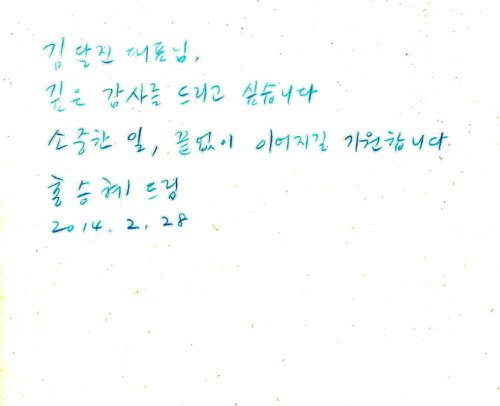 김달진 대표님.
깊은 감사를 드리고 싶습니다
소중한 일, 끝없이 이어지길 기원합니다.
홍승혜 드림
2014. 2. 28